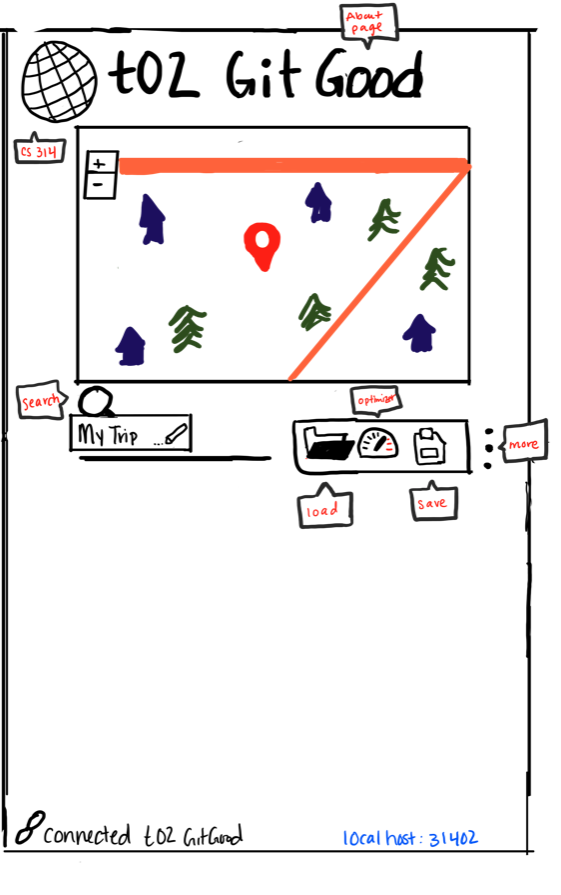 About
page
t02 Git Good
CS 314
+
-
search
optimizer
My Trip ...
more
load
save
connected t02 GitGood
localhost: 31402